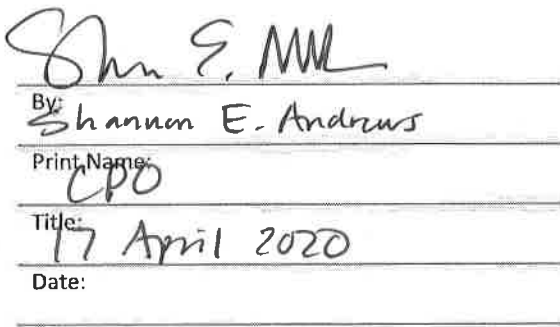 By:
Shannon E. Andrews
Print Name:
CPO
Title:
17 April 2020
Date: